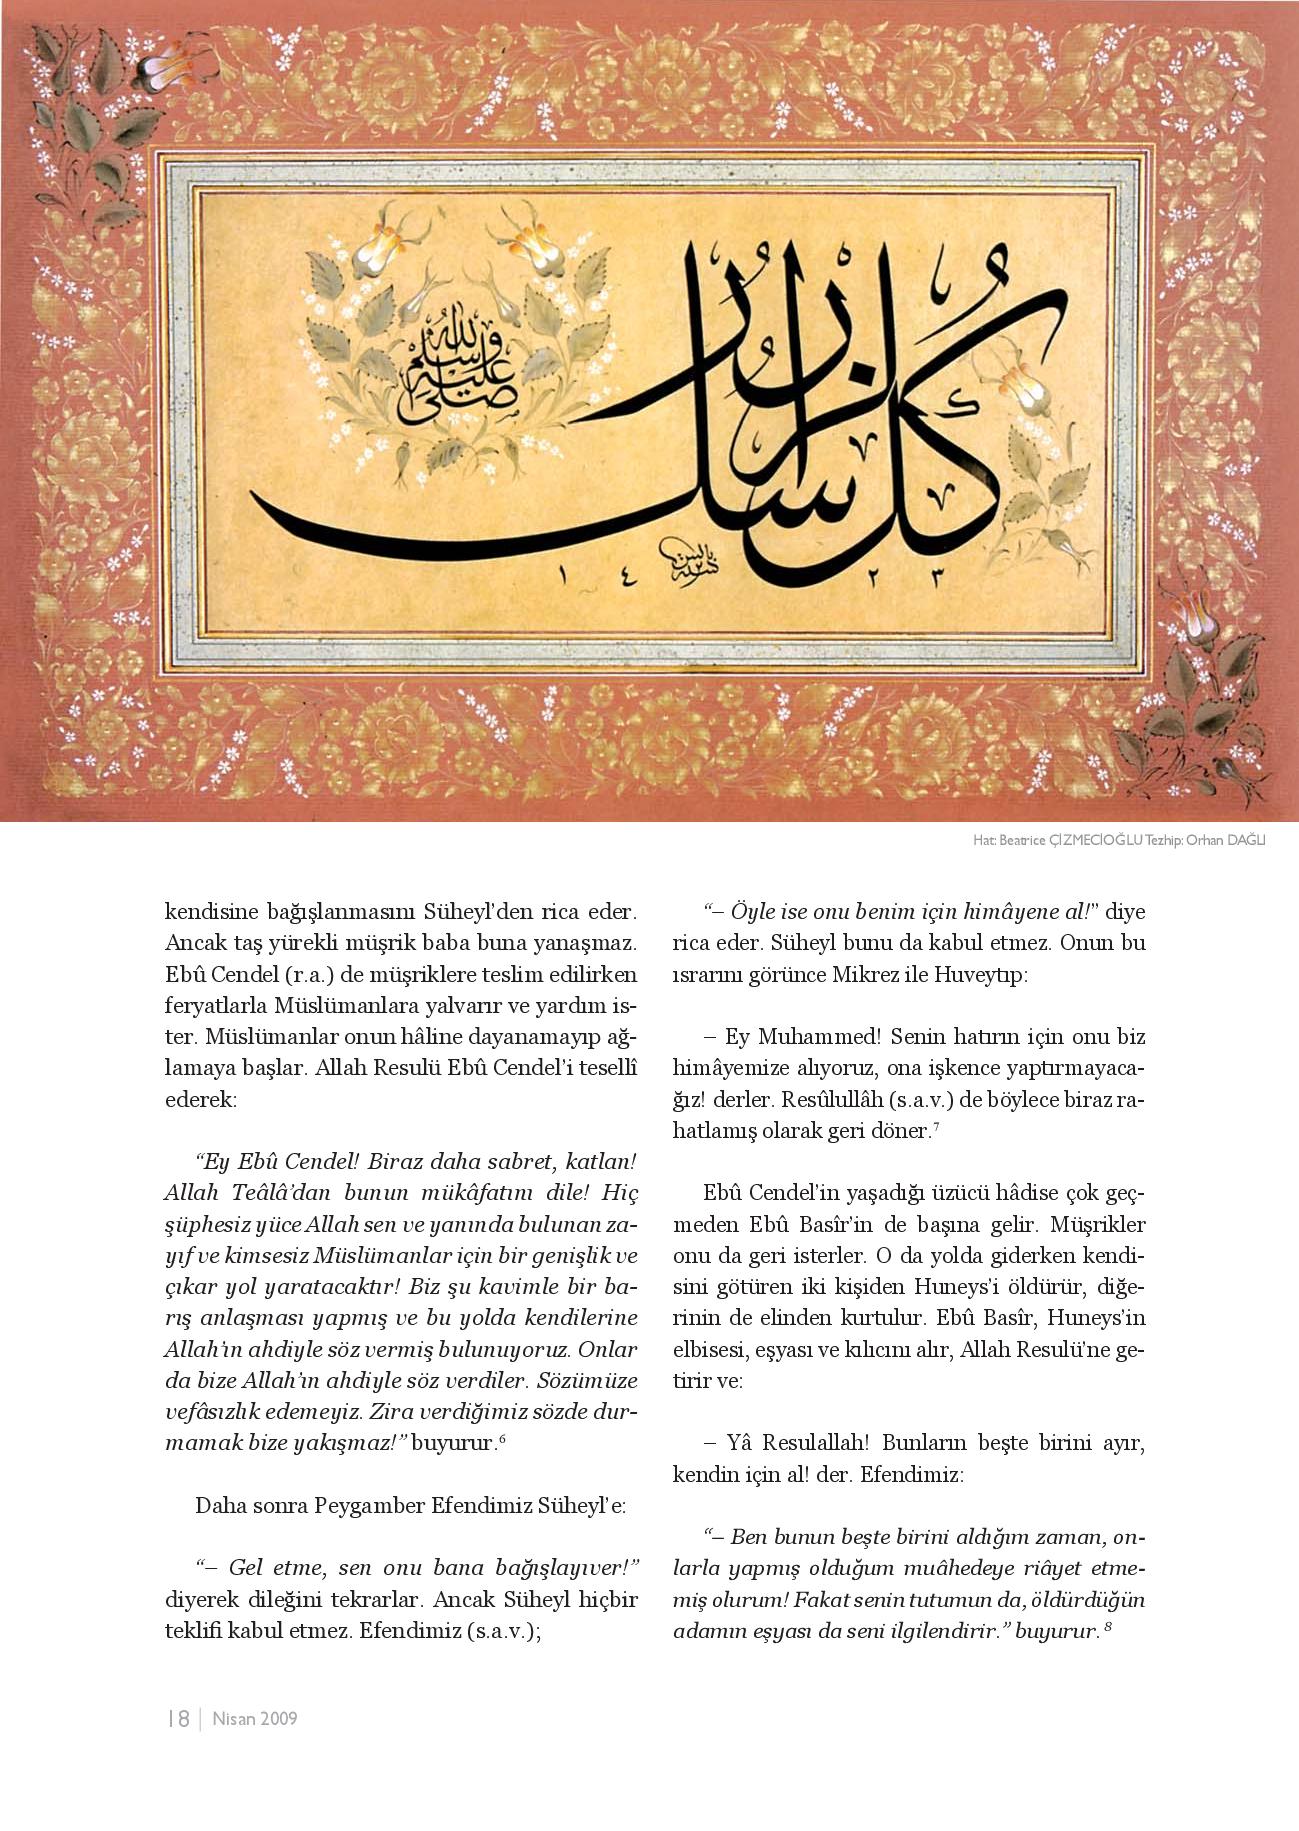 صلى الله عليه وسلم
١ ٤ ٢ ٣
Hat: Beatrice ÇİZMECİOĞLU Tezhip: Orhan DAĞLI
kendisine bağışlanmasını Süheyl’den rica eder.
Ancak taş yürekli müşrik baba buna yanaşmaz.
Ebû Cendel (r.a.) de müşriklere teslim edilirken
feryatlarla Müslümanlara yalvarır ve yardım is-
ter. Müslümanlar onun hâline dayanamayıp ağ-
lamaya başlar. Allah Resulü Ebû Cendel’i tesellî
ederek:
“Ey Ebû Cendel! Biraz daha sabret, katlan!
Allah Teâlâ’dan bunun mükâfatını dile! Hiç
şüphesiz yüce Allah sen ve yanında bulunan za-
yıf ve kimsesiz Müslümanlar için bir genişlik ve
çıkar yol yaratacaktır! Biz şu kavimle bir ba-
rış anlaşması yapmış ve bu yolda kendilerine
Allah’ın ahdiyle söz vermiş bulunuyoruz. Onlar
da bize Allah’ın ahdiyle söz verdiler. Sözümüze
vefâsızlık edemeyiz. Zira verdiğimiz sözde dur-
mamak bize yakışmaz!” buyurur.⁶
Daha sonra Peygamber Efendimiz Süheyl’e:
“– Gel etme, sen onu bana bağışlayıver!”
diyerek dileğini tekrarlar. Ancak Süheyl hiçbir
teklifi kabul etmez. Efendimiz (s.a.v.);
“– Öyle ise onu benim için himâyene al!” diye
rica eder. Süheyl bunu da kabul etmez. Onun bu
ısrarını görünce Mikrez ile Huveytıp:
– Ey Muhammed! Senin hatırın için onu biz
himâyemize alıyoruz, ona işkence yaptırmayaca-
ğız! derler. Resûlullâh (s.a.v.) de böylece biraz ra-
hatlamış olarak geri döner.⁷
Ebû Cendel’in yaşadığı üzücü hâdise çok geç-
meden Ebû Basîr’in de başına gelir. Müşrikler
onu da geri isterler. O da yolda giderken kendi-
sini götüren iki kişiden Huneys’i öldürür, diğe-
rinin de elinden kurtulur. Ebû Basîr, Huneys’in
elbisesi, eşyası ve kılıcını alır, Allah Resulü’ne ge-
tirir ve:
– Yâ Resulallah! Bunların beşte birini ayır,
kendin için al! der. Efendimiz:
“– Ben bunun beşte birini aldığım zaman, on-
larla yapmış olduğum muâhedeye riâyet etme-
miş olurum! Fakat senin tutumun da, öldürdüğün
adamın eşyası da seni ilgilendirir.” buyurur.⁸
18 | Nisan 2009